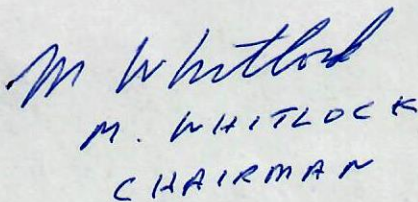 M Whitlock
M. WHITLOCK
CHAIRMAN